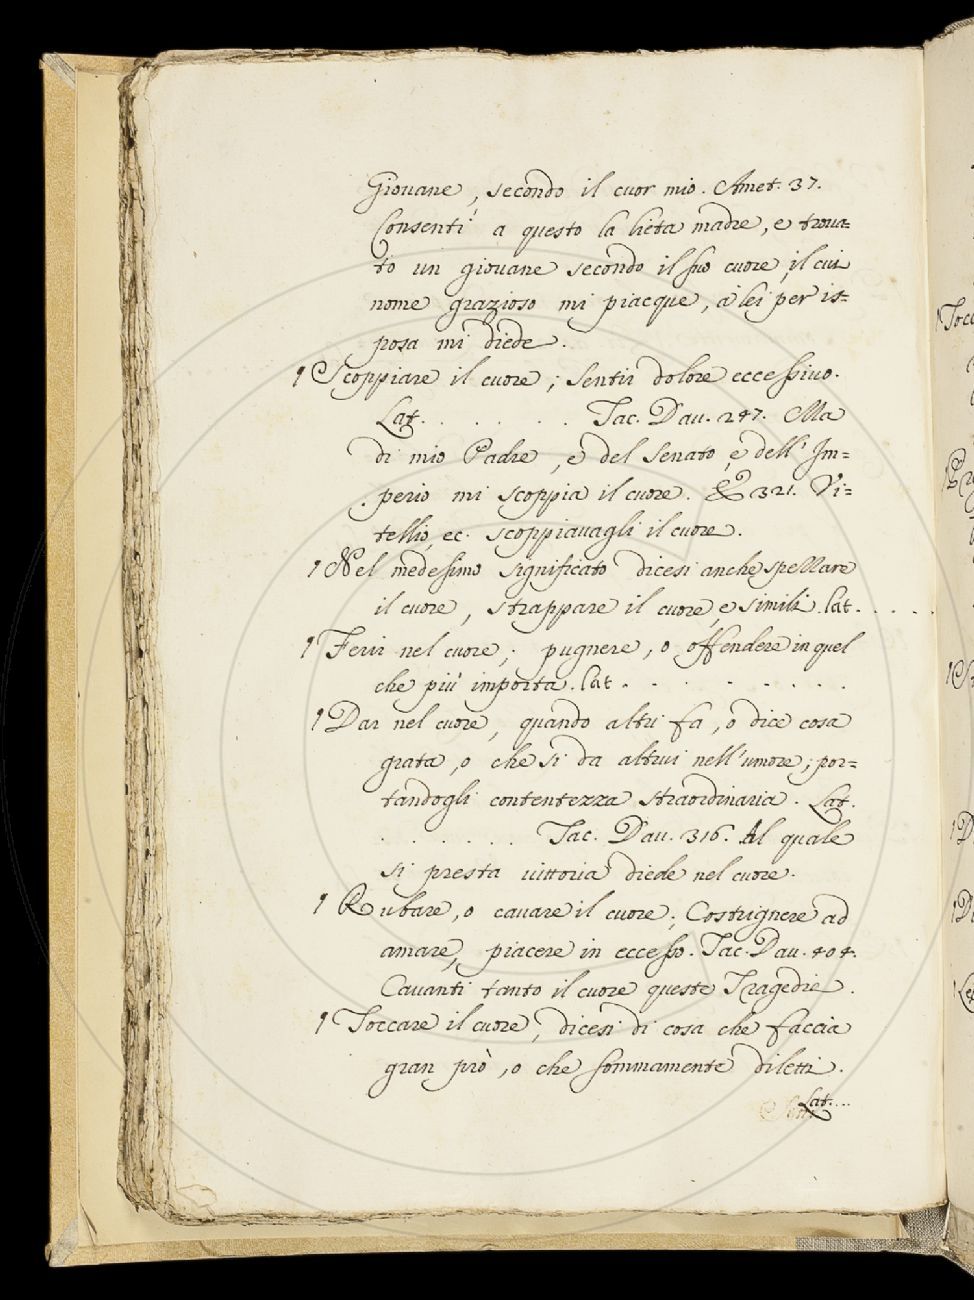 Giovane, secondo il cuor mio. Amet. 37.
Consentì a questo la lieta madre, e trova=
to un giovane secondo il suo cuore, il cui
nome grazioso mi piacque, à lei per is=
posa mi diede.
¶ Scoppiare il cuore; sentir dolore eccessivo.
Lat. . . . . . . Tac. Dav. 247. Ma
di mio Padre, e del Senato, e dell' Im=
perio mi scoppia il cuore. & 321. Vi=
tellio, ec. scoppiavagli il cuore.
¶ Nel medesimo significato dicesi anche spellare
il cuore, strappare il cuore, e simili. lat. . . . .
¶ Ferir nel cuore; pugnere, o offendere in quel
che più importa. lat . . . . . . . .
¶ Dar nel cuore, quando altri fa, o dice cosa
grata, o che si da altrui nell'umore; por=
tandogli contentezza straordinaria. Lat.
. . . . . . . Tac. Dav. 316. Al quale
si presta vittoria diede nel cuore.
¶ Rubare, o cavare il cuore; Costrignere ad
amare, piacere in eccesso. Tac. Dav. 404.
Cavanti tanto il cuore queste Tragedie.
¶ Toccare il cuore, dicesi di cosa che faccia
gran prò, o che sommamente diletti.
Lat. ...
Tocc